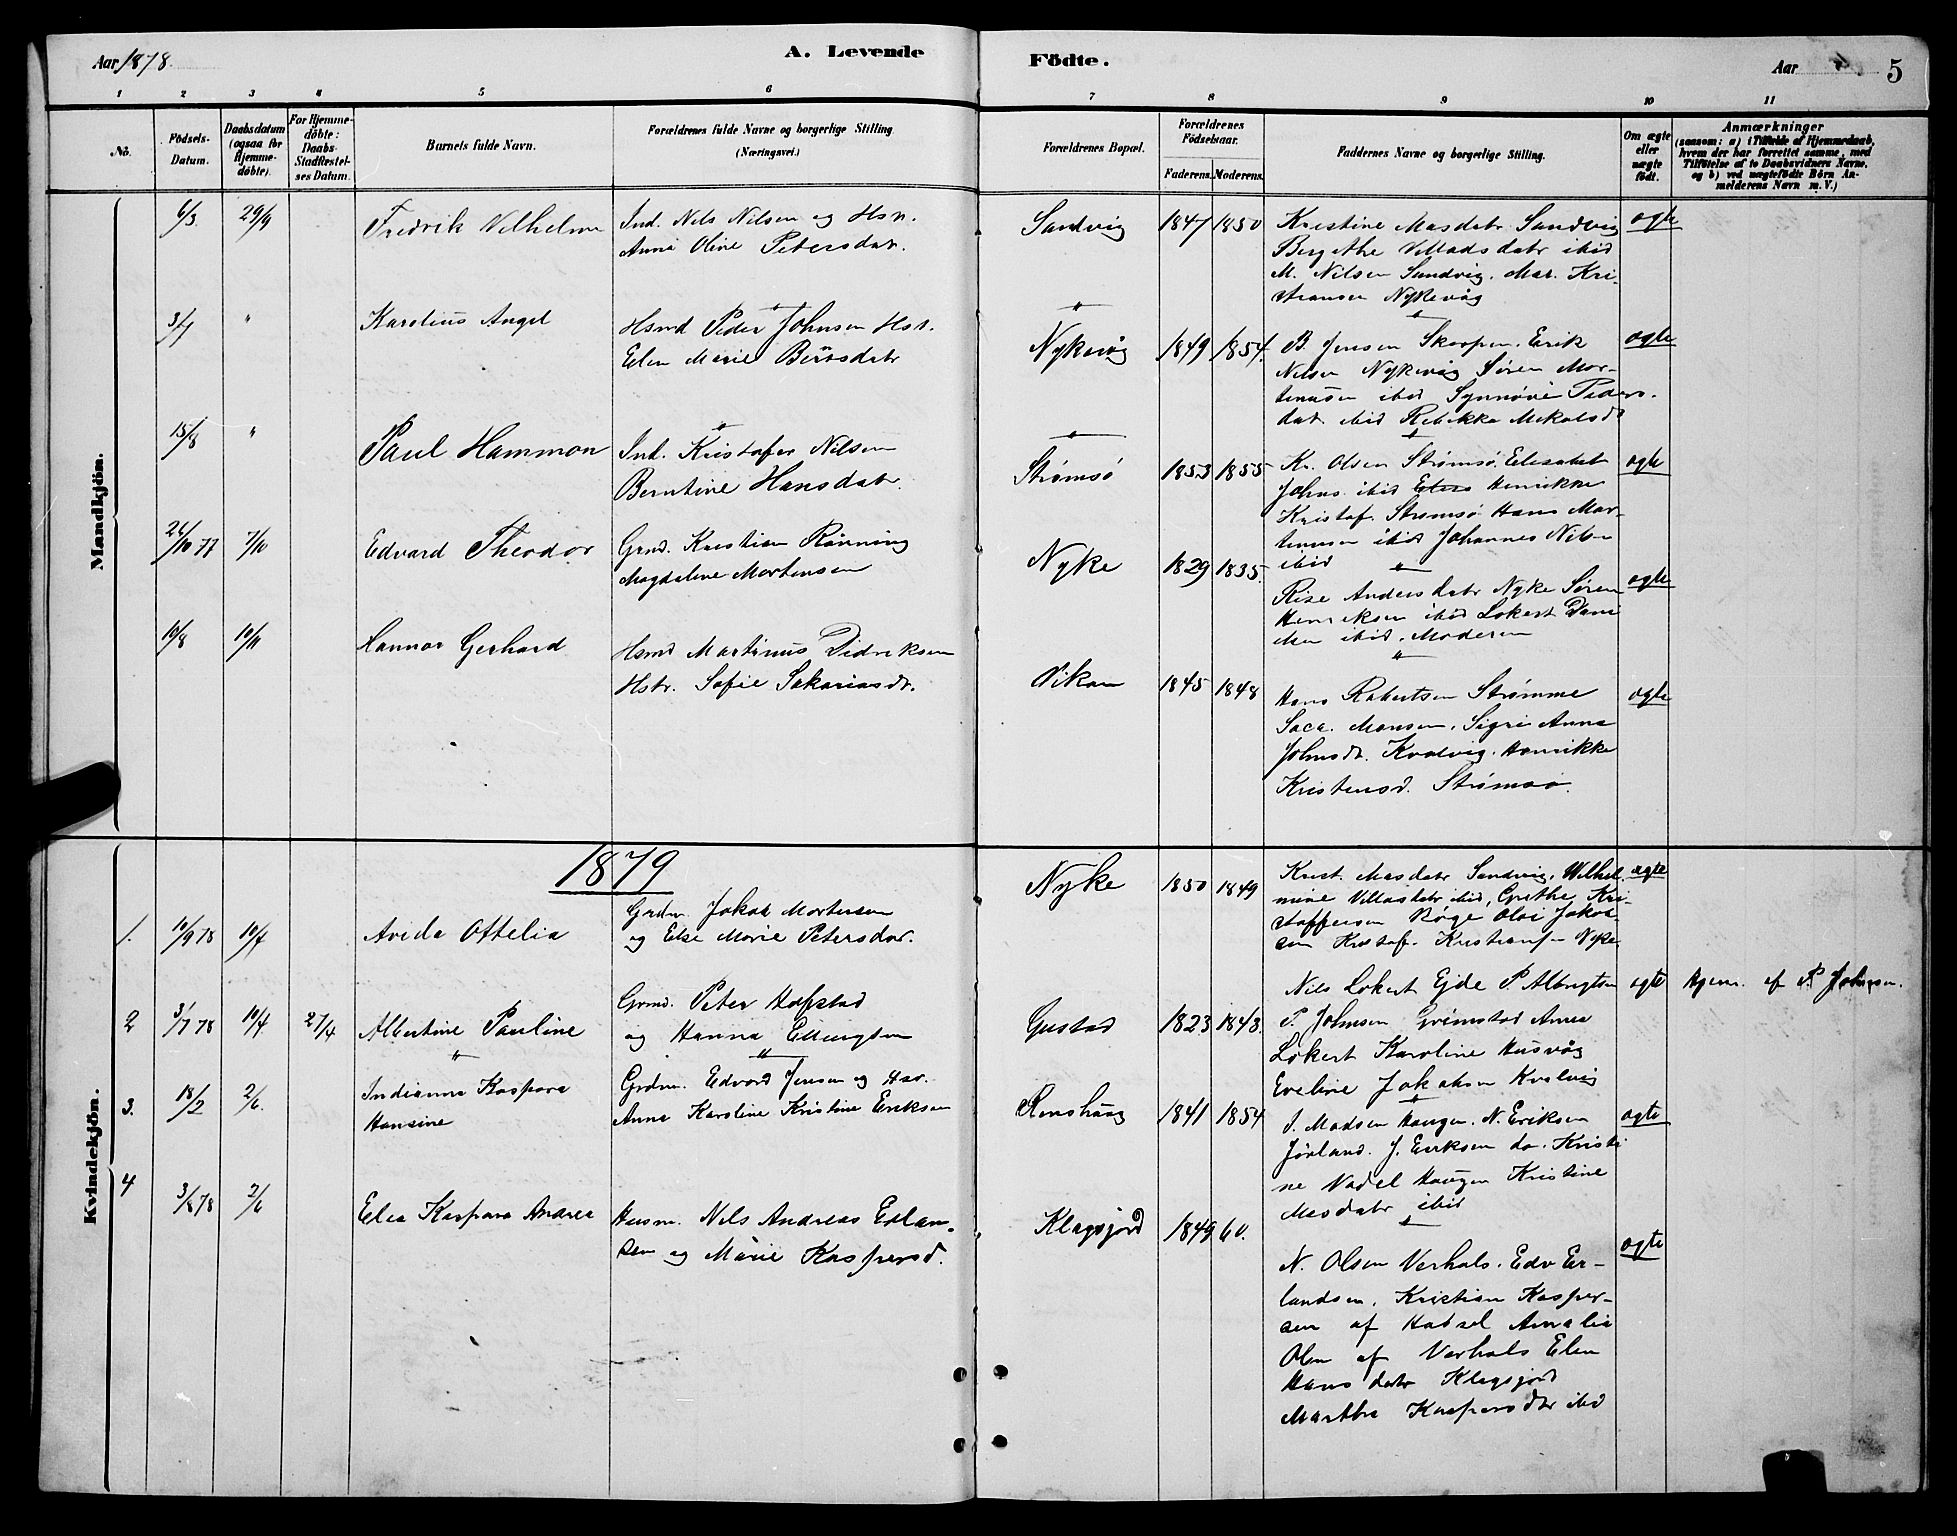 Aar 1878.
A. Levende Födte.
Aar 5
1 2 3 4 5 6 7 8 9 10 11
No.
Födsels-Datum.
Daabsdatum (ogsaa for Hjemme-döbte).
For Hjemme-döbte: Daabs-Stadfæstel-ses Datum.
Barnets fulde Navn.
Forældrenes fulde Navne og borgerlige Stilling. (Næringsvei.)
Forældrenes Bopæl.
Forældrenes Födselsaar.
Faderens. Moderens.
Faddernes Navne og borgerlige Stilling.
Om ægte eller uægte födt.
Anmærkninger
(saasom: a) i Tilfælde af Hjemmedaab,
hvem der har forrettet samme, med
Tilföielse af to Daabsvidners Navne,
og b) ved uægtefödte Börn An-
melderens Navn m. V.)
Mandkjön.
6/3. 29/9 Fredrik Vilhelm
Ind. Nils Nilsen og Hsn.
Anna Oline Petersdatr.
Sandvig 1847 1850
Kristine Masdatr Sandvig
Bergithe Villadsdatr ibid
M. Nilsen Sandvig. Mar. Kri-
stiansen Nykevåg
ægte
3/7 " Karolius Angel
Hsmd Peder Johnsen Hst.
Elen Marie Berntsdatr
Nykvåg 1849 1854.
B. Jensen Skorpen. Erik
Nilsen Nykevåg Søren Mor-
tinusen ibid Synnøve Peders-
datr ibid Rebikka Mekalsdt
ægte
15/8 " Paul Hammon
Ind. Kristofer Nilsen
Berntine Hansdatr.
Strømsö 1853 1855
Kr. Olsen Strømsö, Elisabet
Johns. ibid Henrikke
Kristof. Strømsö Hans Mar-
tinusen ibid Johannes Nils-
ibid
ægte
26/10 77 7/10 Edvard Theodor
Grmd. Kristian Rönning
Magdalene Mortensen
Nyke 1829 1835.
Andersdatr Nyke Søren
Henriksen ibid Lokert Dani-
elsen ibid. Moderen
ægte
10/8 10/11 Hannas Gerhard
Hsmd Martinus Didriksen
Hstr. Sofie Sakariasdt.
Vikan 1845 1848
Hans Robertsen Strømme
Saca. Monsen. Sigri Anna
Johnsdt. Kvalvig. Henrikke
Kristensd. Strømsö.
ægte
1879
Kvindekjön.
1. 10/9 78 10/4 Avida Ottelia
Grdm. Jakob Mortensen
og Else Marie Petersdar.
Nyke 1850 1849
Krist. Masdatr Sandvig. Wilhel-
mine Villasdatr ibid, Grethe Kri-
stoffersen Røge Olai Jakob-
sen Kristof. Kristians- Nyke
ægte
2 3/7 78 10/4 27/4 Albertine Pauline
Grmd. Peter Hofstad
og Hanna Ellingsen
Gustad 1823 1843.
Nils Lokert Eide P Albrigtsen
P. Johnsen Grimstad Anna
Lokert Karoline Husvåg
Eveline Jakobsen Kvalvig
ægte Hjem. af P. Johnsen.
3. 18/2 2/6. Indianna Kaspara
Hansine
Grdm. Edvard Jensen og Hsr.
Anna Karoline Kristine Eriksen
Renshaug 1841 1854
J. Madsen Haugen. N. Eriksen
Jörland. J. Eriksen do. Kristi
ne Nadel Haugen Kristine
Masdatr ibid
ægte
4 3/8 78 2/6 Elea Kaspara Andrea
Husm. Nils Andreas Erlan-
sen og Marie Kaspersd.
Klagsjord 1849 60.
N. Olsen Verhals. Edv Er-
landsen. Kristian Kasper-
sen af Hadsel Amalia
Olsn af Verhals Elen
Hansdatr Klagsjord
Martha Kaspersdtr ibid
ægte